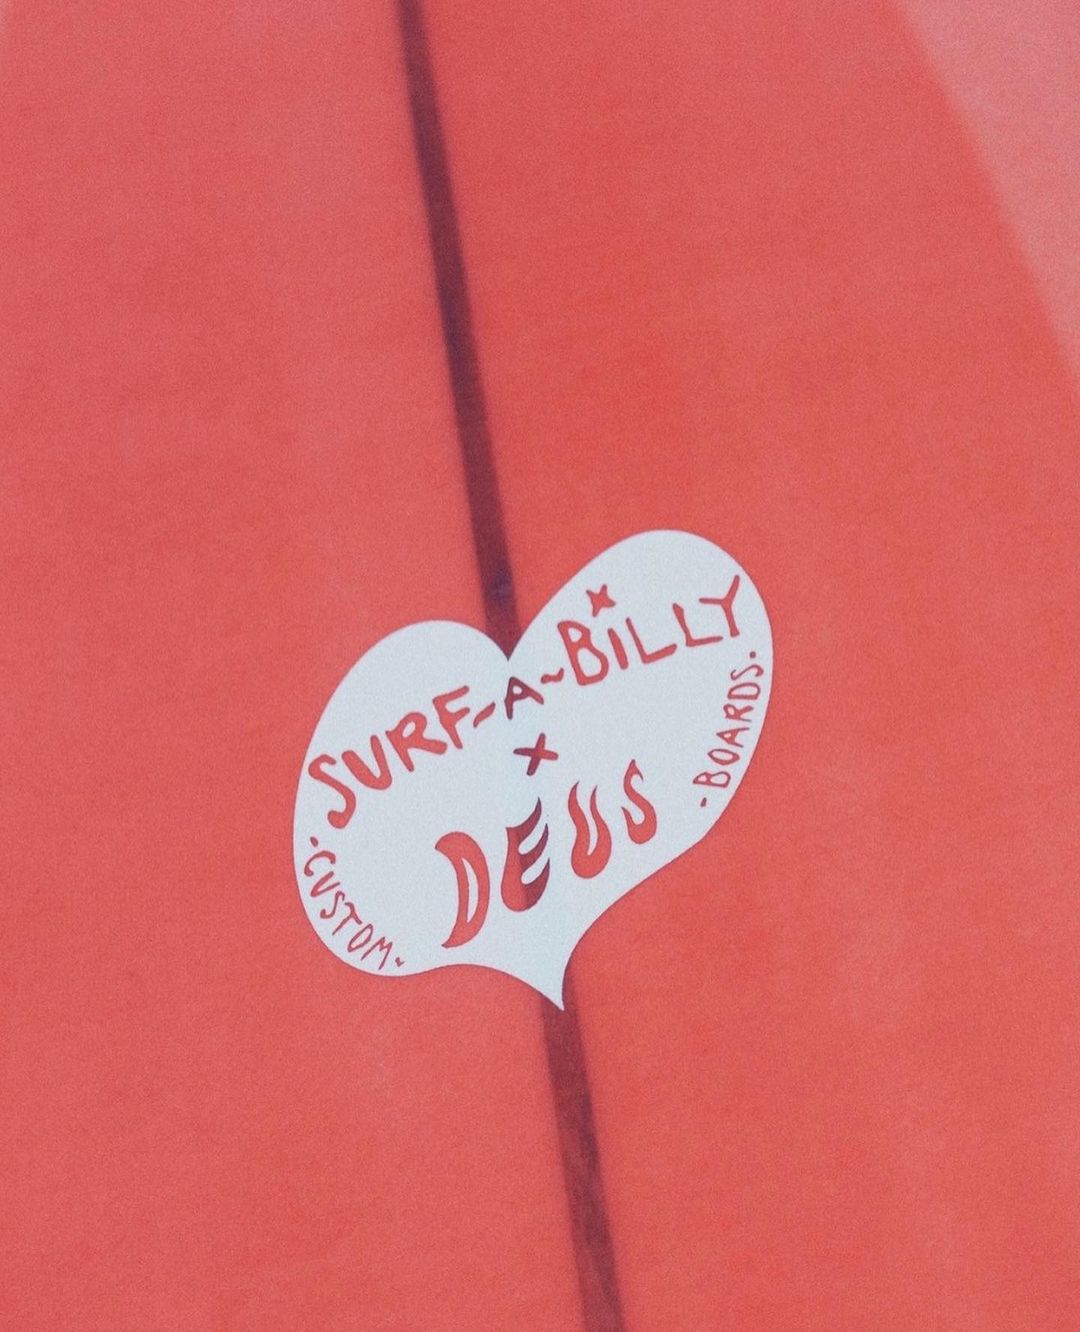 SURF-A-BiLLY
x
DEUS
·CUSTOM·
·BOARDS·